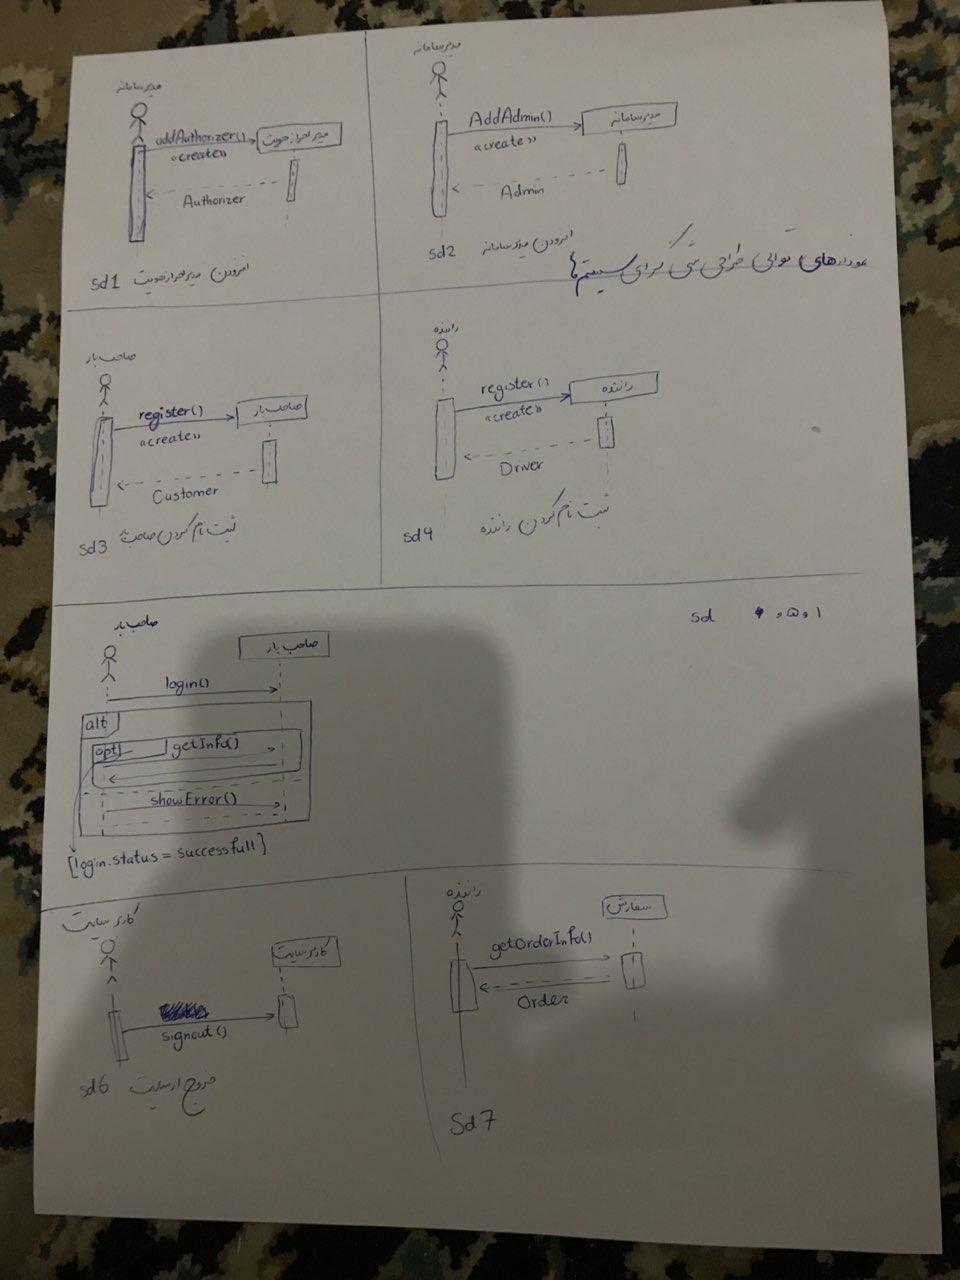 مدیر سامانه
addAuthorizer()
مدیر احراز هویت
«create»
Authorizer
sd1 افزودن مدیر احراز هویت
مدیر سامانه
AddAdmin()
مدیر سامانه
«create»
Admin
sd2 افزودن مدیر سامانه
نمودارهای توالی طراحی شی گرای سیستم‌ها
صاحب بار
register()
صاحب بار
«create»
Customer
sd3 ثبت نام کردن صاحب بار
راننده
register()
راننده
«create»
Driver
sd4 ثبت نام کردن راننده
صاحب بار
صاحب بار
login()
alt
opt
getInfo()
showError()
[login.status = successfull]
sd
کاربر سایت
کاربر سایت
signout()
sd6 خروج از سایت
راننده
سفارش
getOrderInfo()
Order
Sd7